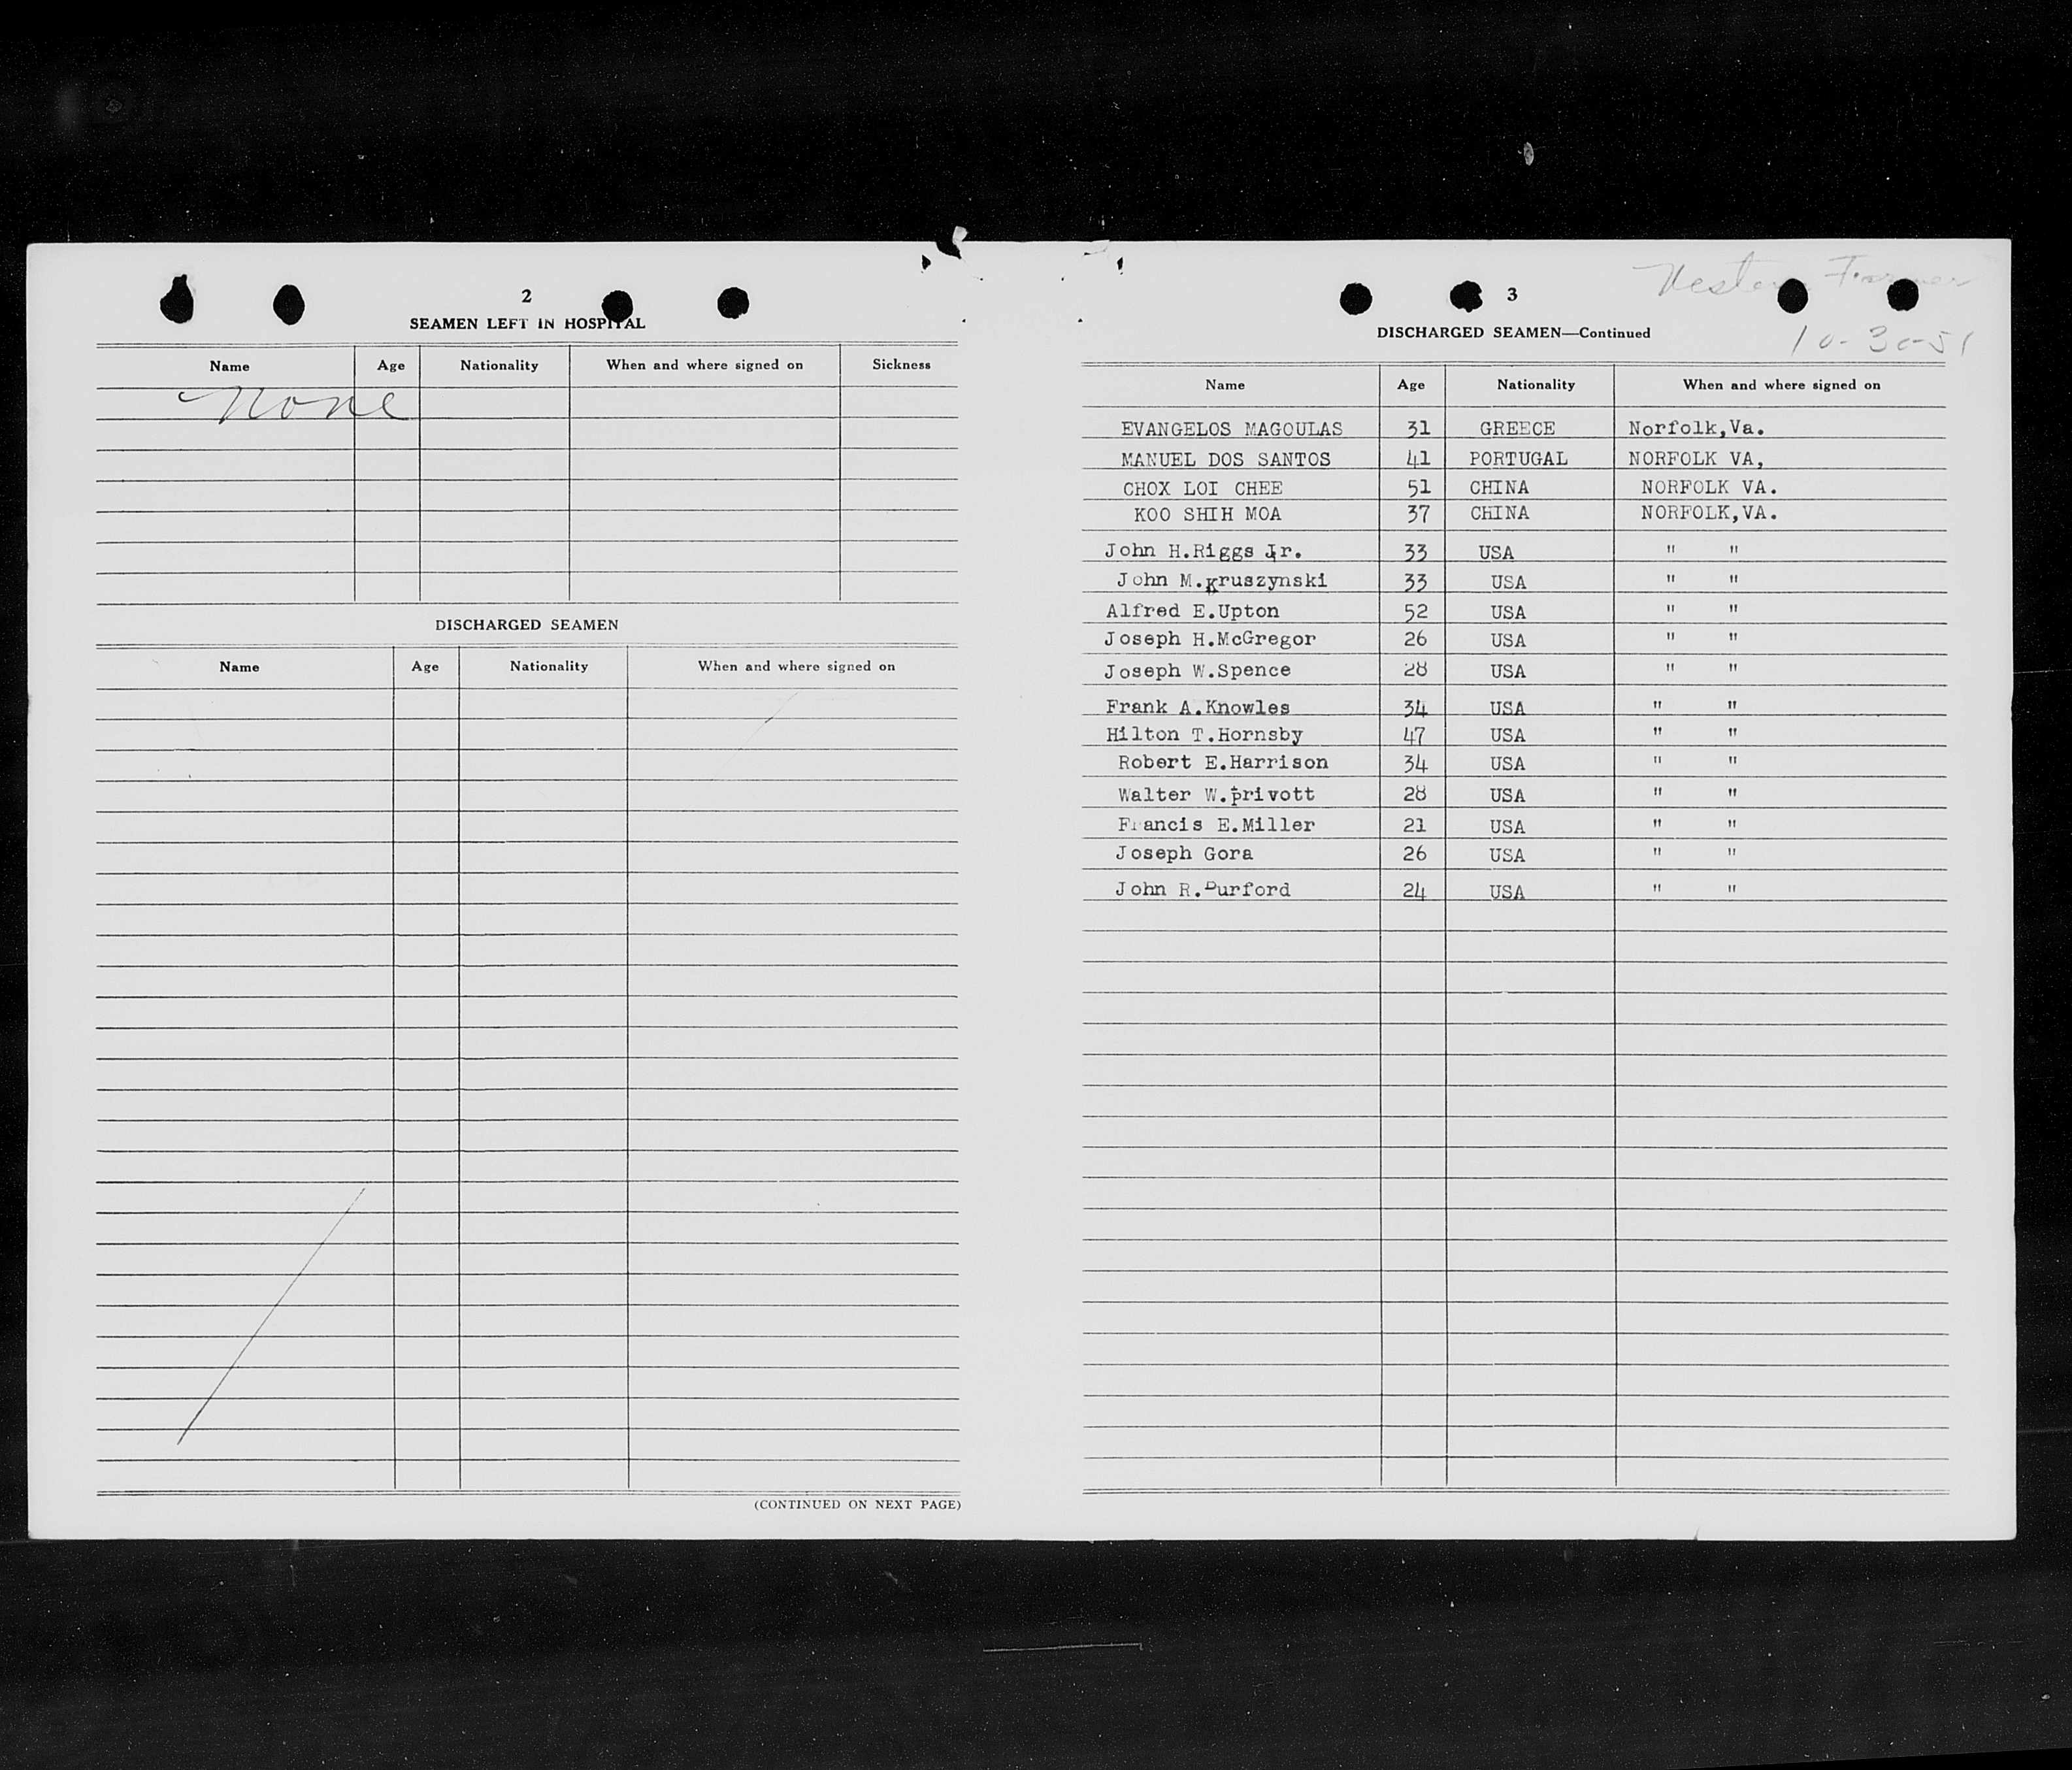 2
SEAMEN LEFT IN HOSPITAL
Name Age Nationality When and where signed on Sickness
None
DISCHARGED SEAMEN
Name Age Nationality When and where signed on
(CONTINUED ON NEXT PAGE)
Western Farmer
3
DISCHARGED SEAMEN—Continued
10-30-51
Name Age Nationality When and where signed on
EVANGELOS MAGOULAS 31 GREECE Norfolk,Va.
MANUEL DOS SANTOS 41 PORTUGAL NORFOLK VA,
CHOX LOI CHEE 51 CHINA NORFOLK VA.
KOO SHIH MOA 37 CHINA NORFOLK,VA.
John H.Riggs Jr. 33 USA " "
John M.Kruszynski 33 USA " "
Alfred E.Upton 52 USA " "
Joseph H.McGregor 26 USA " "
Joseph W.Spence 28 USA " "
Frank A.Knowles 34 USA " "
Hilton T.Hornsby 47 USA " "
Robert E.Harrison 34 USA " "
Walter W.privott 28 USA " "
Francis E.Miller 21 USA " "
Joseph Gora 26 USA " "
John R.Durford 24 USA " "